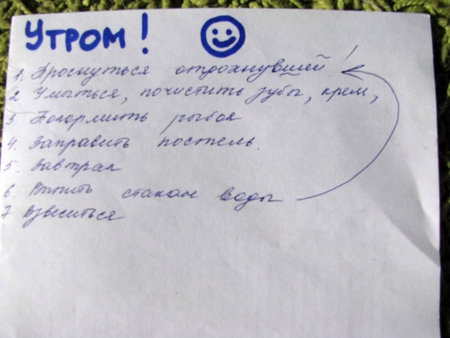 УТРОМ!
1. Проснуться отдохнувшей!
2 Умыться, почистить зубы, крем,
3 Покормить рыбок
4. Заправить постель.
5. Завтрак
6 Выпить стакан воды
7 Взвеситься